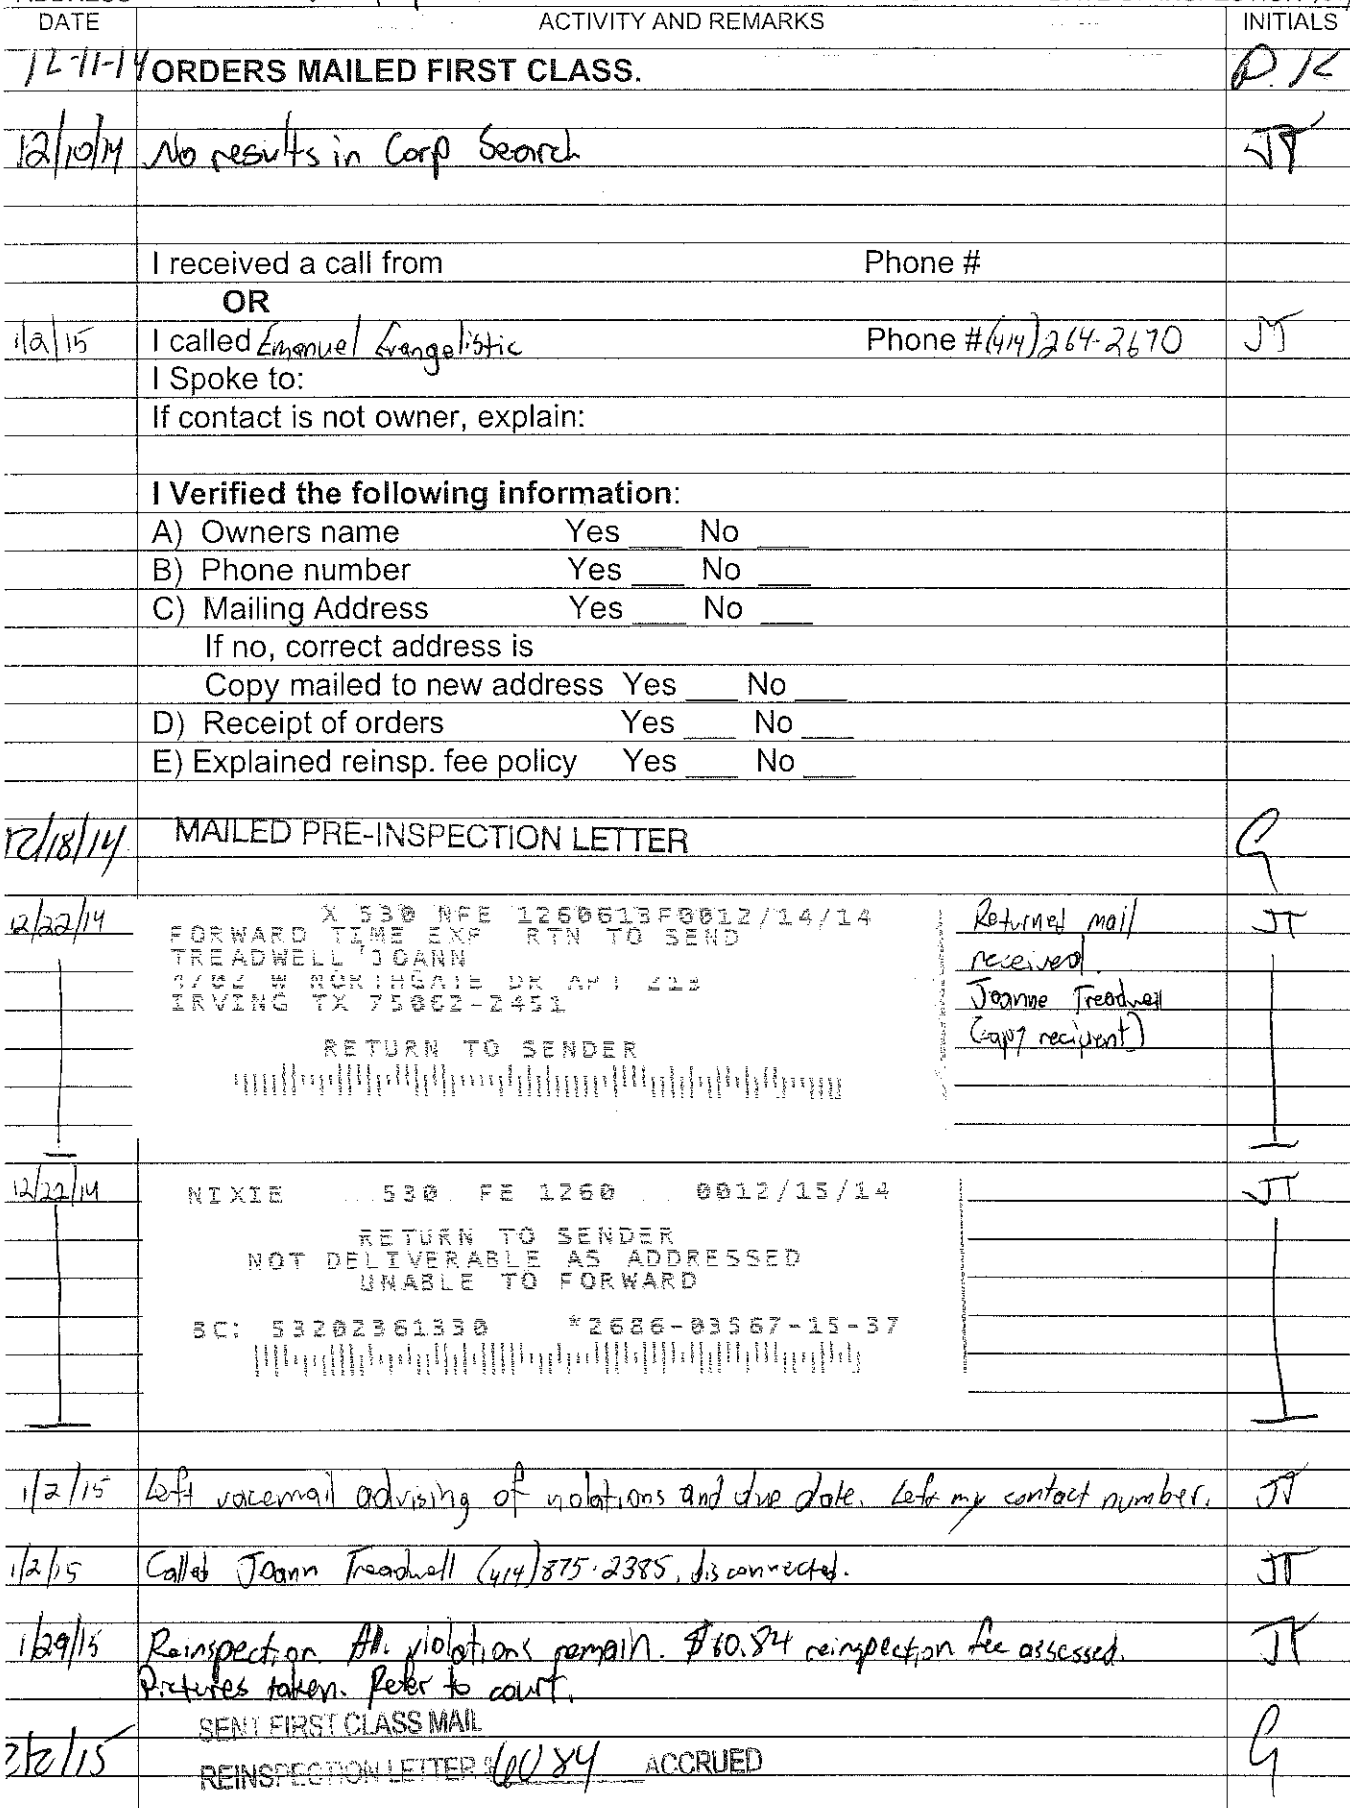 DATE ACTIVITY AND REMARKS INITIALS
12-11-14 ORDERS MAILED FIRST CLASS. D.K
12/10/14 No results in Corp Search JT
I received a call from Phone #
OR
1/2/15 I called Emanuel Evangelistic Phone # (414)264-2670 JT
I Spoke to:
If contact is not owner, explain:
I Verified the following information:
A) Owners name Yes ___ No ___
B) Phone number Yes ___ No ___
C) Mailing Address Yes ___ No ___
If no, correct address is
Copy mailed to new address Yes ___ No ___
D) Receipt of orders Yes ___ No ___
E) Explained reinsp. fee policy Yes ___ No ___
12/18/14 MAILED PRE-INSPECTION LETTER G
12/22/14 X 530 NFE 1260613F0012/14/14 Returned mail JT
FORWARD TIME EXP RTN TO SEND
TREADWELL'JOANN received.
W NORTHGATE DR APT Joanne Treadwell
IRVING TX 75062-2451
(copy recipient)
RETURN TO SENDER
12/22/14 NIXIE 530 FE 1260 0012/15/14 JT
RETURN TO SENDER
NOT DELIVERABLE AS ADDRESSED
UNABLE TO FORWARD
BC: 53202361330 *2686-03567-15-37
1/2/15 Left voicemail advising of violations and due date. Left my contact number. JT
1/2/15 Called Joann Treadwell (414)875-2385, disconnected. JT
1/29/15 Reinspection. All violations remain. $60.84 reinspection fee assessed. JT
Pictures taken. Refer to court.
SENT FIRST CLASS MAIL
2/2/15 REINSPECTION LETTER $ 60 84 ACCRUED G